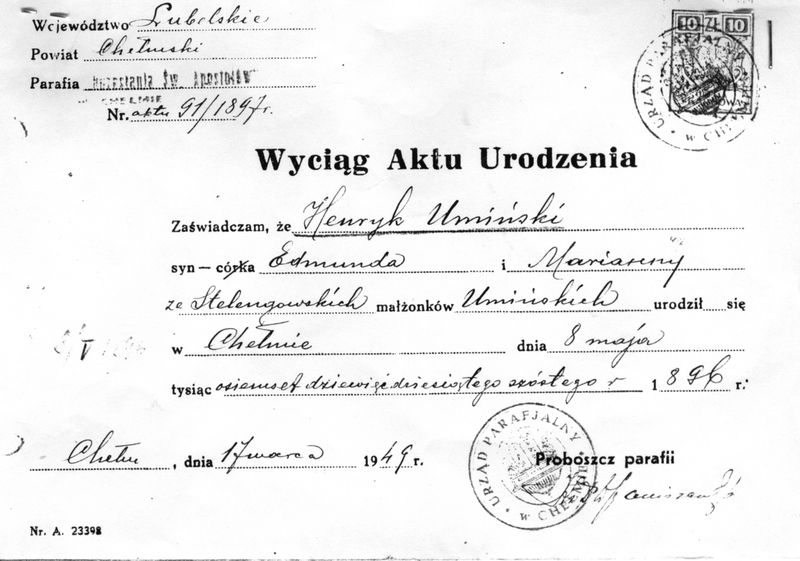 Województwo Lubelskie
Powiat Chełmski
Parafia Rozesłania Św. Apostołów
w CHEŁMIE
Nr. aktu 91/1897r.
10 ZŁ 10
URZĄD PARAFJALNY
w CHEŁMIE
Wyciąg Aktu Urodzenia
Zaświadczam, że Henryk Umiński
syn — córka Edmunda i Marianny
ze Stelengowskich małżonków Umińskich urodził się
w Chełmie dnia 8 maja
tysiąc osiemset dziewięćdziesiątego szóstego r 1896 r.
Chełm, dnia 17 marca 1949 r.
URZĄD PARAFJALNY
w CHEŁMIE
Proboszcz parafii
Nr. A. 23398